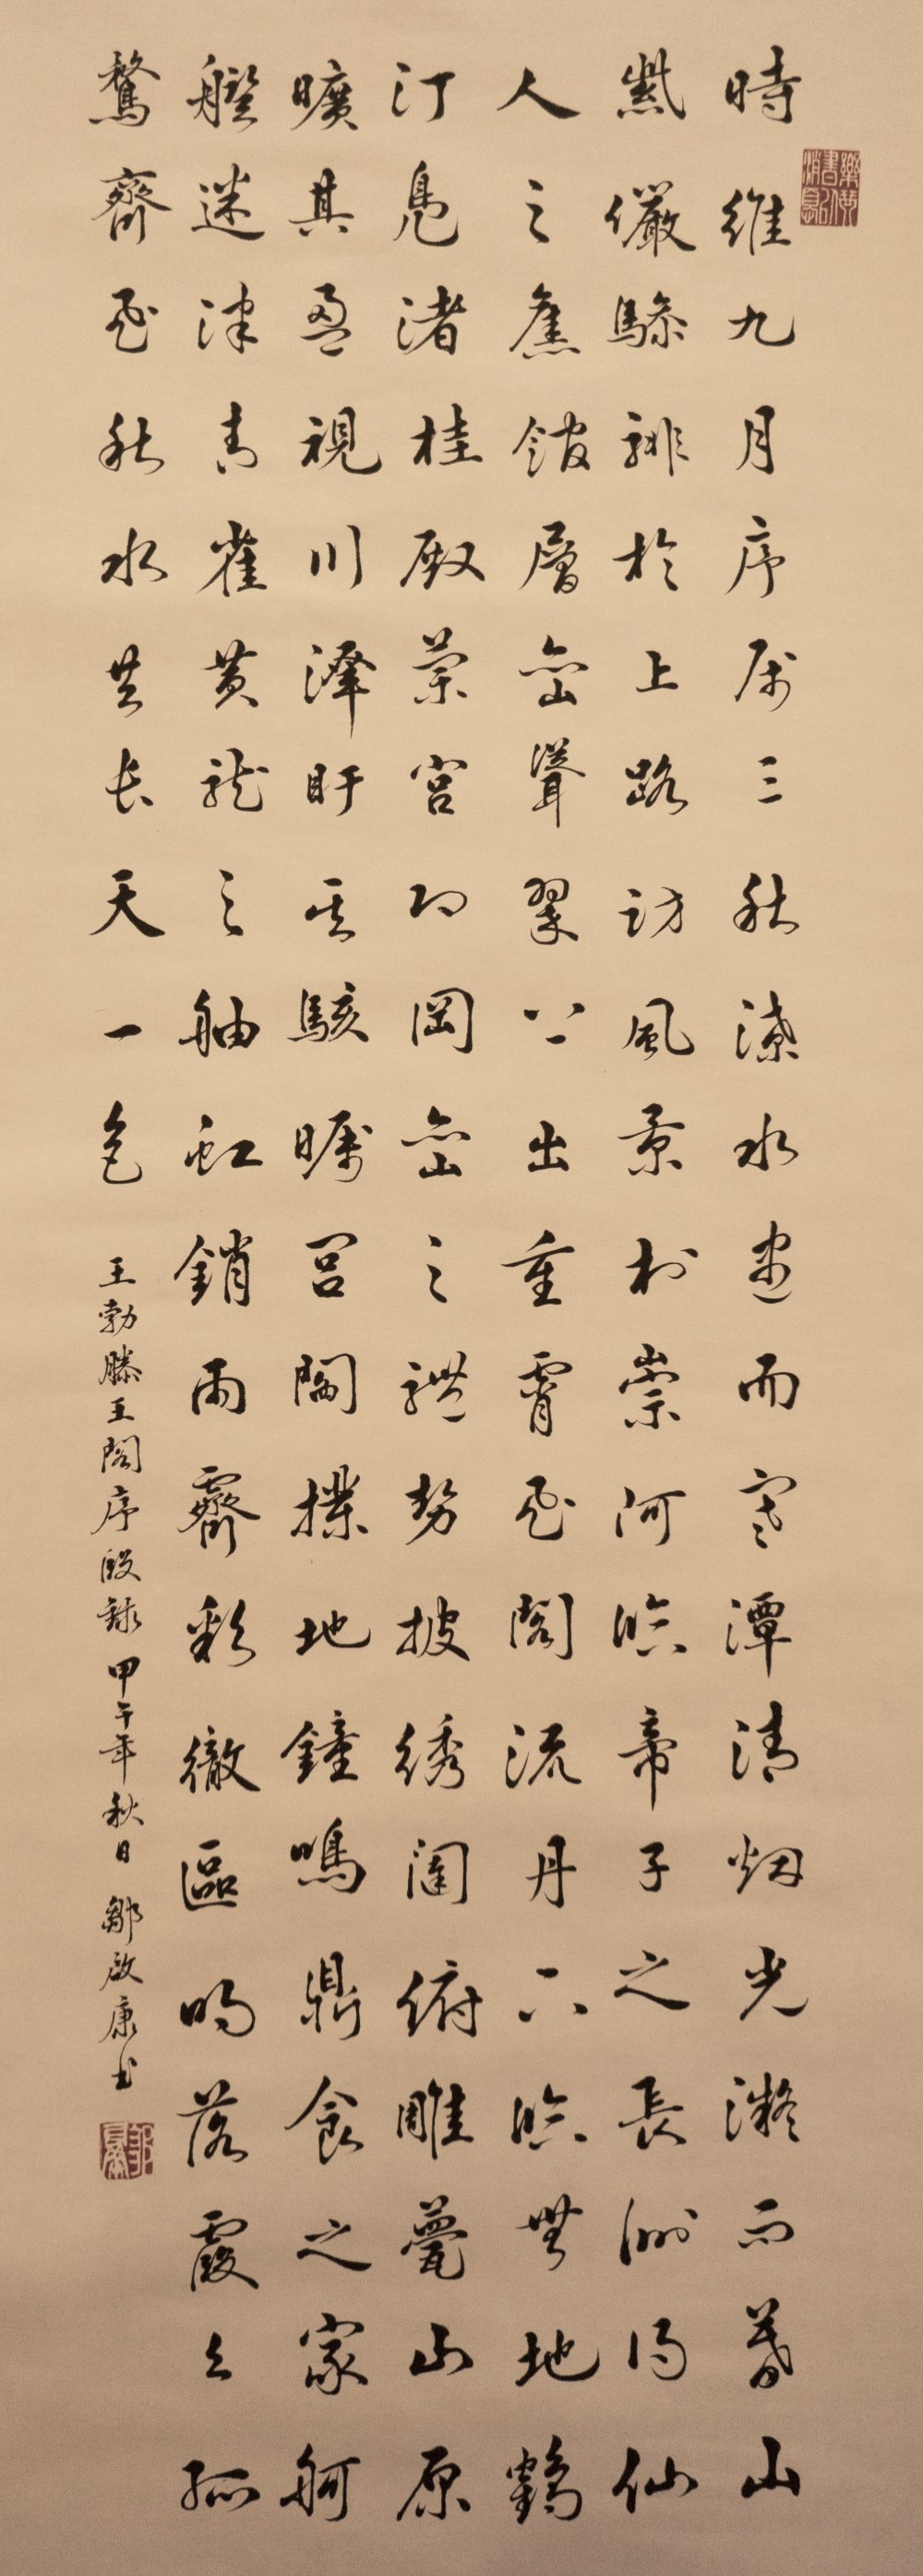 時維九月序屬三秋潦水盡而寒潭清烟光凝而暮山
紫儼驂騑於上路訪風景於崇阿臨帝子之長洲得仙
人之舊館層巒聳翠上出重霄飛閣流丹下臨無地鶴
汀鳧渚桂殿蘭宮即岡巒之體勢披綉闥俯雕甍山原
曠其盈視川澤盱其駭矚閭閻撲地鐘鳴鼎食之家舸
艦迷津青雀黃龍之舳虹銷雨霽彩徹區明落霞与孤
鶩齊飛秋水共長天一色
王勃滕王閣序段錄甲午年秋日鄒啟康書